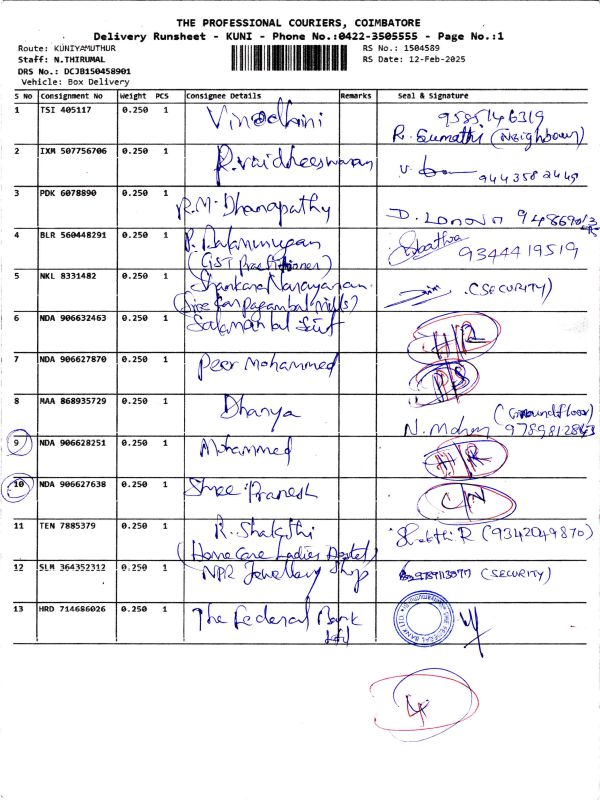 THE PROFESSIONAL COURIERS, COIMBATORE
Delivery Runsheet - KUNI - Phone No.:0422-3505555 - Page No.:1
Route: KUNIYAMUTHUR RS No.: 1504589
Staff: N.THIRUMAL RS Date: 12-Feb-2025
DRS No.: DCJB150458901
Vehicle: Box Delivery
S No Consignment No Weight PCS Consignee Details Remarks Seal & Signature
1 TSI 405117 0.250 1 Vinodhini 9585146319
R. Sumathi (Neighbour)
2 IXM 507756706 0.250 1 R. Vaidheeswaran 9443582449
3 PDK 6078890 0.250 1 R.M. Dhanapathy
4 BLR 560448291 0.250 1 9344419519
(GST Practitioner)
5 NKL 8331482 0.250 1 Shankara Narayanan (SECURITY)
6 NDA 906632463 0.250 1 H/R
7 NDA 906627870 0.250 1 Peer Mohammed
8 MAA 868935729 0.250 1 Dhanya (Groundfloor)
N. Mohan
9 NDA 906628251 0.250 1 Mohammed H/R
10 NDA 906627638 0.250 1 Shree Pranesh C/N
11 TEN 7885379 0.250 1 R. Shakthi Shakthi R (9342049870)
(Home Care Ladies Hostel)
12 SLM 364352312 0.250 1 NPR Jewellery Shop (SECURITY)
13 HRD 714686026 0.250 1 The Federal Bank
Ltd
4